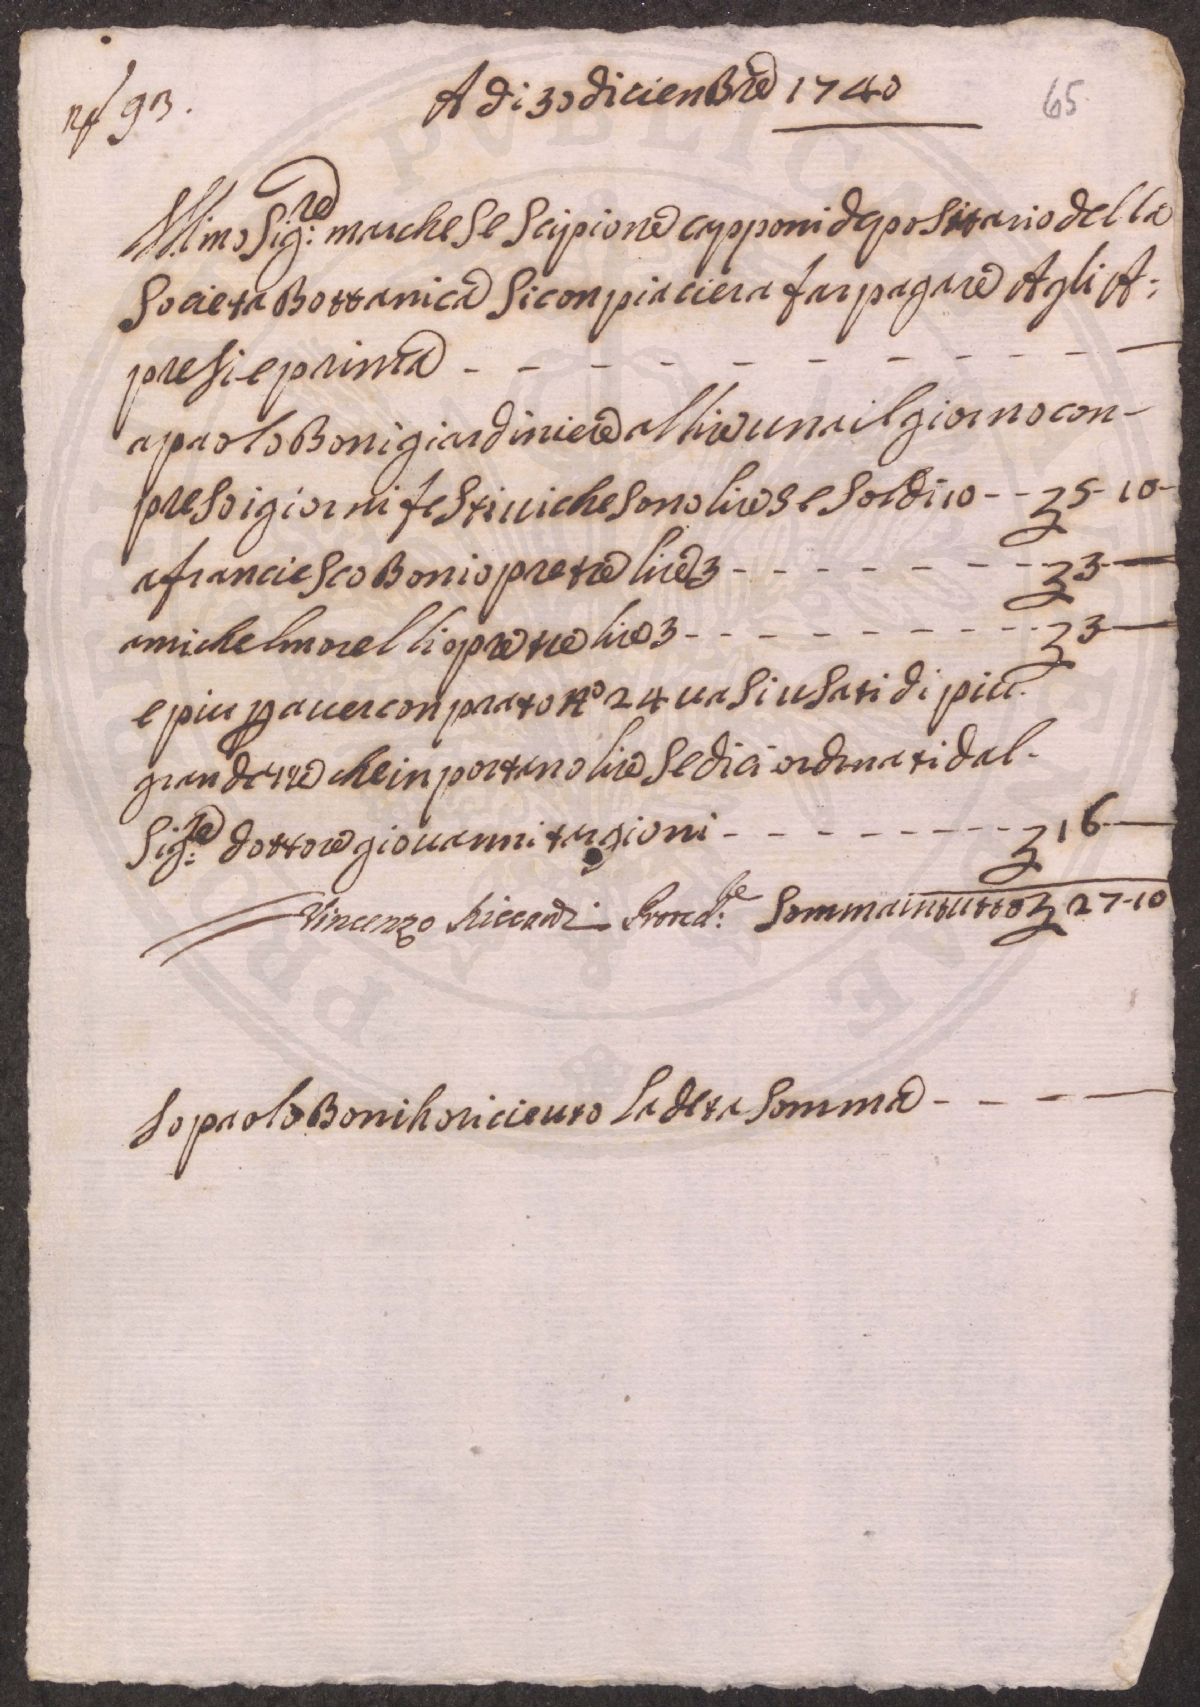 nº 93.
A di 30 dicienbre 1740
65
Ill.mo Sig:re marchese Scipione capponi depositario della
Societa Bottanica Si conpiaciera far pagare Agli A:
presi e prima
a paolo Boni giardiniere a llire una il giorno con-
preso i giorni festivi che sono lire 5 e soldi 10 - - £ 5-10-
a franciesco Boni opre tre lire 3 - - - - - - - - £ 3 -
a michel morelli opre tre lire 3 - - - - - - - - £ 3 -
e piu p aver conprato nº 24 vasi usati di piu
grandezze che inportano lire sedici ordinati dal
Sig:re dottore giovanni targioni - - - - - - - - £ 16 -
Vincenzo Riccardi Proved:re Somma in tutto £ 27-10
Io paolo Boni ho ricieuto la deta somma - - - -